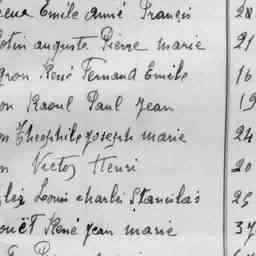 Emile Aimé François 28
auguste Pierre marie 21
René Fernand Emile 16
on Raoul Paul Jean 19
on Théophile joseph marie 24
on Victor Henri 20
Louis charles Stanislas 25
ouët René jean marie 37